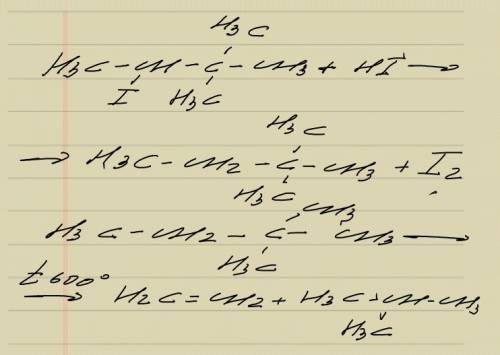 H3C
H3C - CH - C - CH3 + HI →
I H3C
H3C
→ H3C - CH2 - C - CH3 + I2
H3C CH3
H3C - CH2 - C - CH3 →
H3C
t 600° → H2C = CH2 + H3C - CH - CH3
H3C